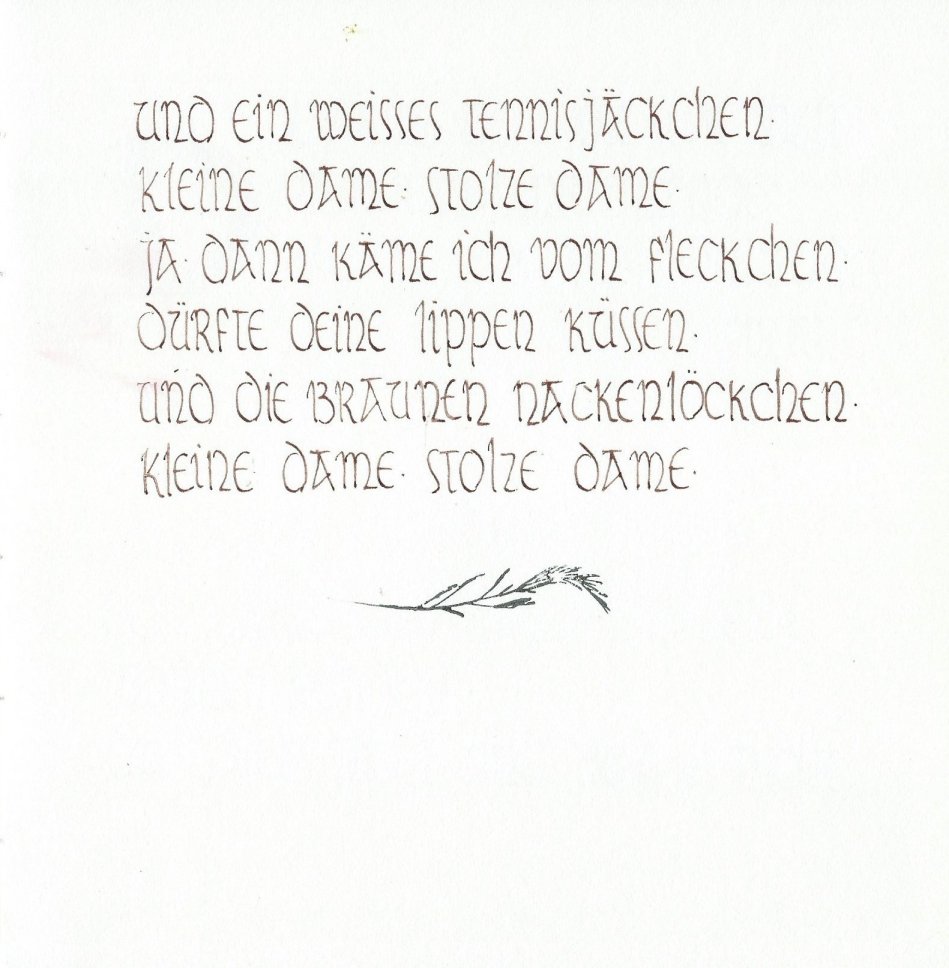 und ein weisses tennisjäckchen·
kleine dame· stolze dame·
ja· dann käme ich vom fleckchen·
dürfte deine lippen küssen·
und die braunen nackenlöckchen·
kleine dame· stolze dame·